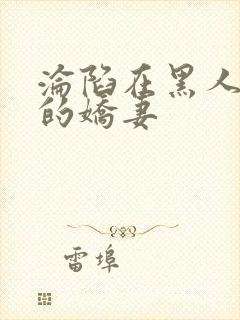 淪陷在黑人
的嬌妻
雷埠